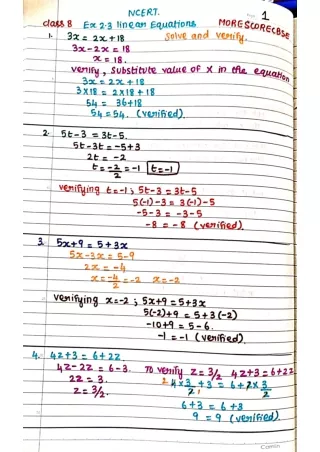 NCERT.
1
Class 8 Ex 2.3 linear Equations. MORESCORECBSE
1. 3x = 2x+18 Solve and verify.
3x-2x = 18
x = 18.
verify, Substitute value of x in the equation
3x = 2x+18
3x18 = 2x18+18
54 = 36+18
54 = 54. (verified).
2. 5t-3 = 3t-5.
5t-3t = -5+3
2t = -2
t = -2/2 = -1 t=-1
verifying t=-1 ; 5t-3 = 3t-5
5(-1)-3 = 3(-1)-5
-5-3 = -3-5
-8 = -8 (verified).
3. 5x+9 = 5+3x
5x-3x = 5-9
2x = -4
x = -4/2 = -2 x=-2
verifying x=-2 ; 5x+9 = 5+3x
5(-2)+9 = 5+3(-2)
-10+9 = 5-6.
-1 = -1 (verified).
4. 4z+3 = 6+2z. To verify z=3/2 4z+3=6+2z
4z-2z = 6-3. 2 4x3/2 +3 = 6+2x3/2
2z = 3. 6+3 = 6+3
z = 3/2. 9 = 9 (verified).